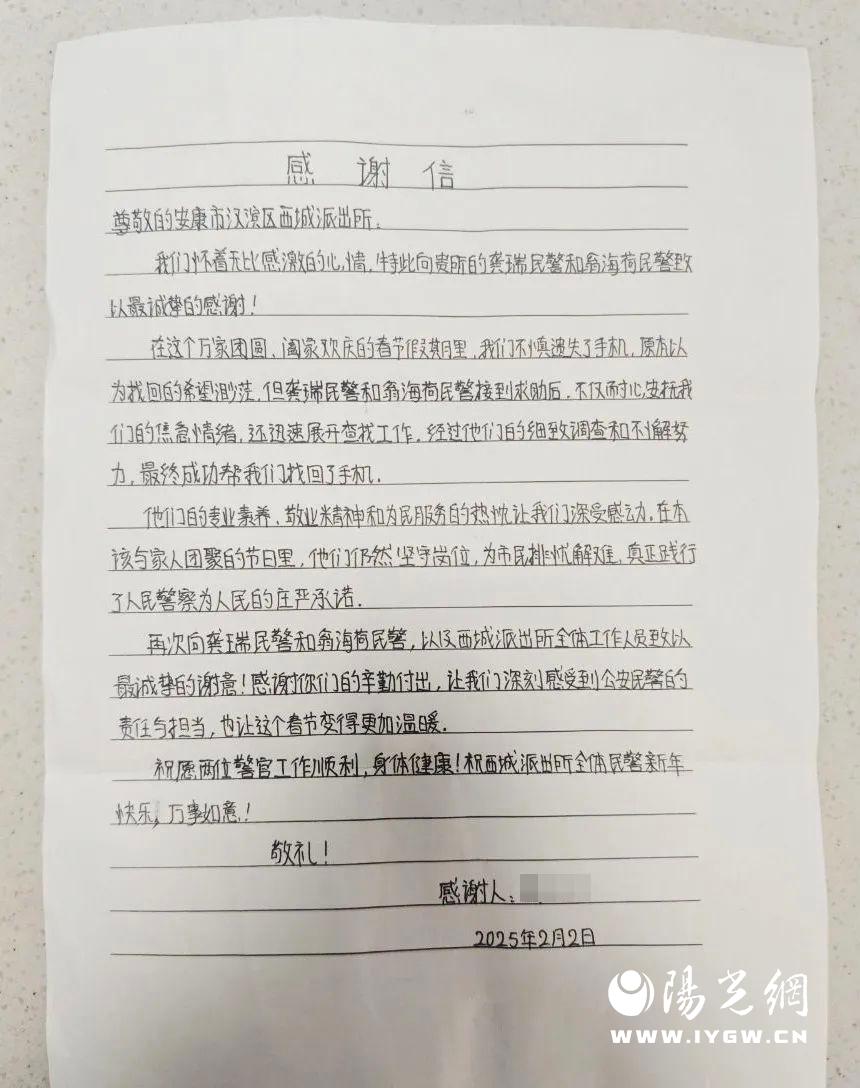 感 谢 信
尊敬的安康市汉滨区西城派出所:
我们怀着无比感激的心情,特此向贵所的龚瑞民警和翁海荷民警致
以最诚挚的感谢!
在这个万家团圆、阖家欢庆的春节假期里,我们不慎遗失了手机,原本以
为找回的希望渺茫,但龚瑞民警和翁海荷民警接到求助后,不仅耐心安抚我
们的焦急情绪,还迅速展开查找工作,经过他们的细致调查和不懈努
力,最终成功帮我们找回了手机.
他们的专业素养、敬业精神和为民服务的热忱让我们深受感动,在本
该与家人团聚的节日里,他们仍然坚守岗位,为市民排忧解难,真正践行
了人民警察为人民的庄严承诺.
再次向龚瑞民警和翁海荷民警,以及西城派出所全体工作人员致以
最诚挚的谢意!感谢你们的辛勤付出,让我们深刻感受到公安民警的
责任与担当,也让这个春节变得更加温暖.
祝愿两位警官工作顺利,身体健康!祝西城派出所全体民警新年
快乐,万事如意!
敬礼!
感谢人:
2025年2月2日
陽光網
WWW.IYGW.CN